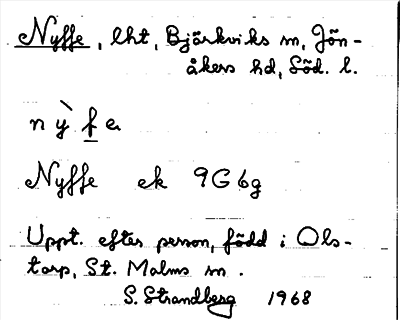 Nyffe, lht, Bjärkviks sn, Jön-
åkers hd, Söd. l.
nỳfe
Nyffe ek 9G 6g
Uppt. efter person, född i Ols-
torp, St. Malms sn.
S. Strandberg 1968